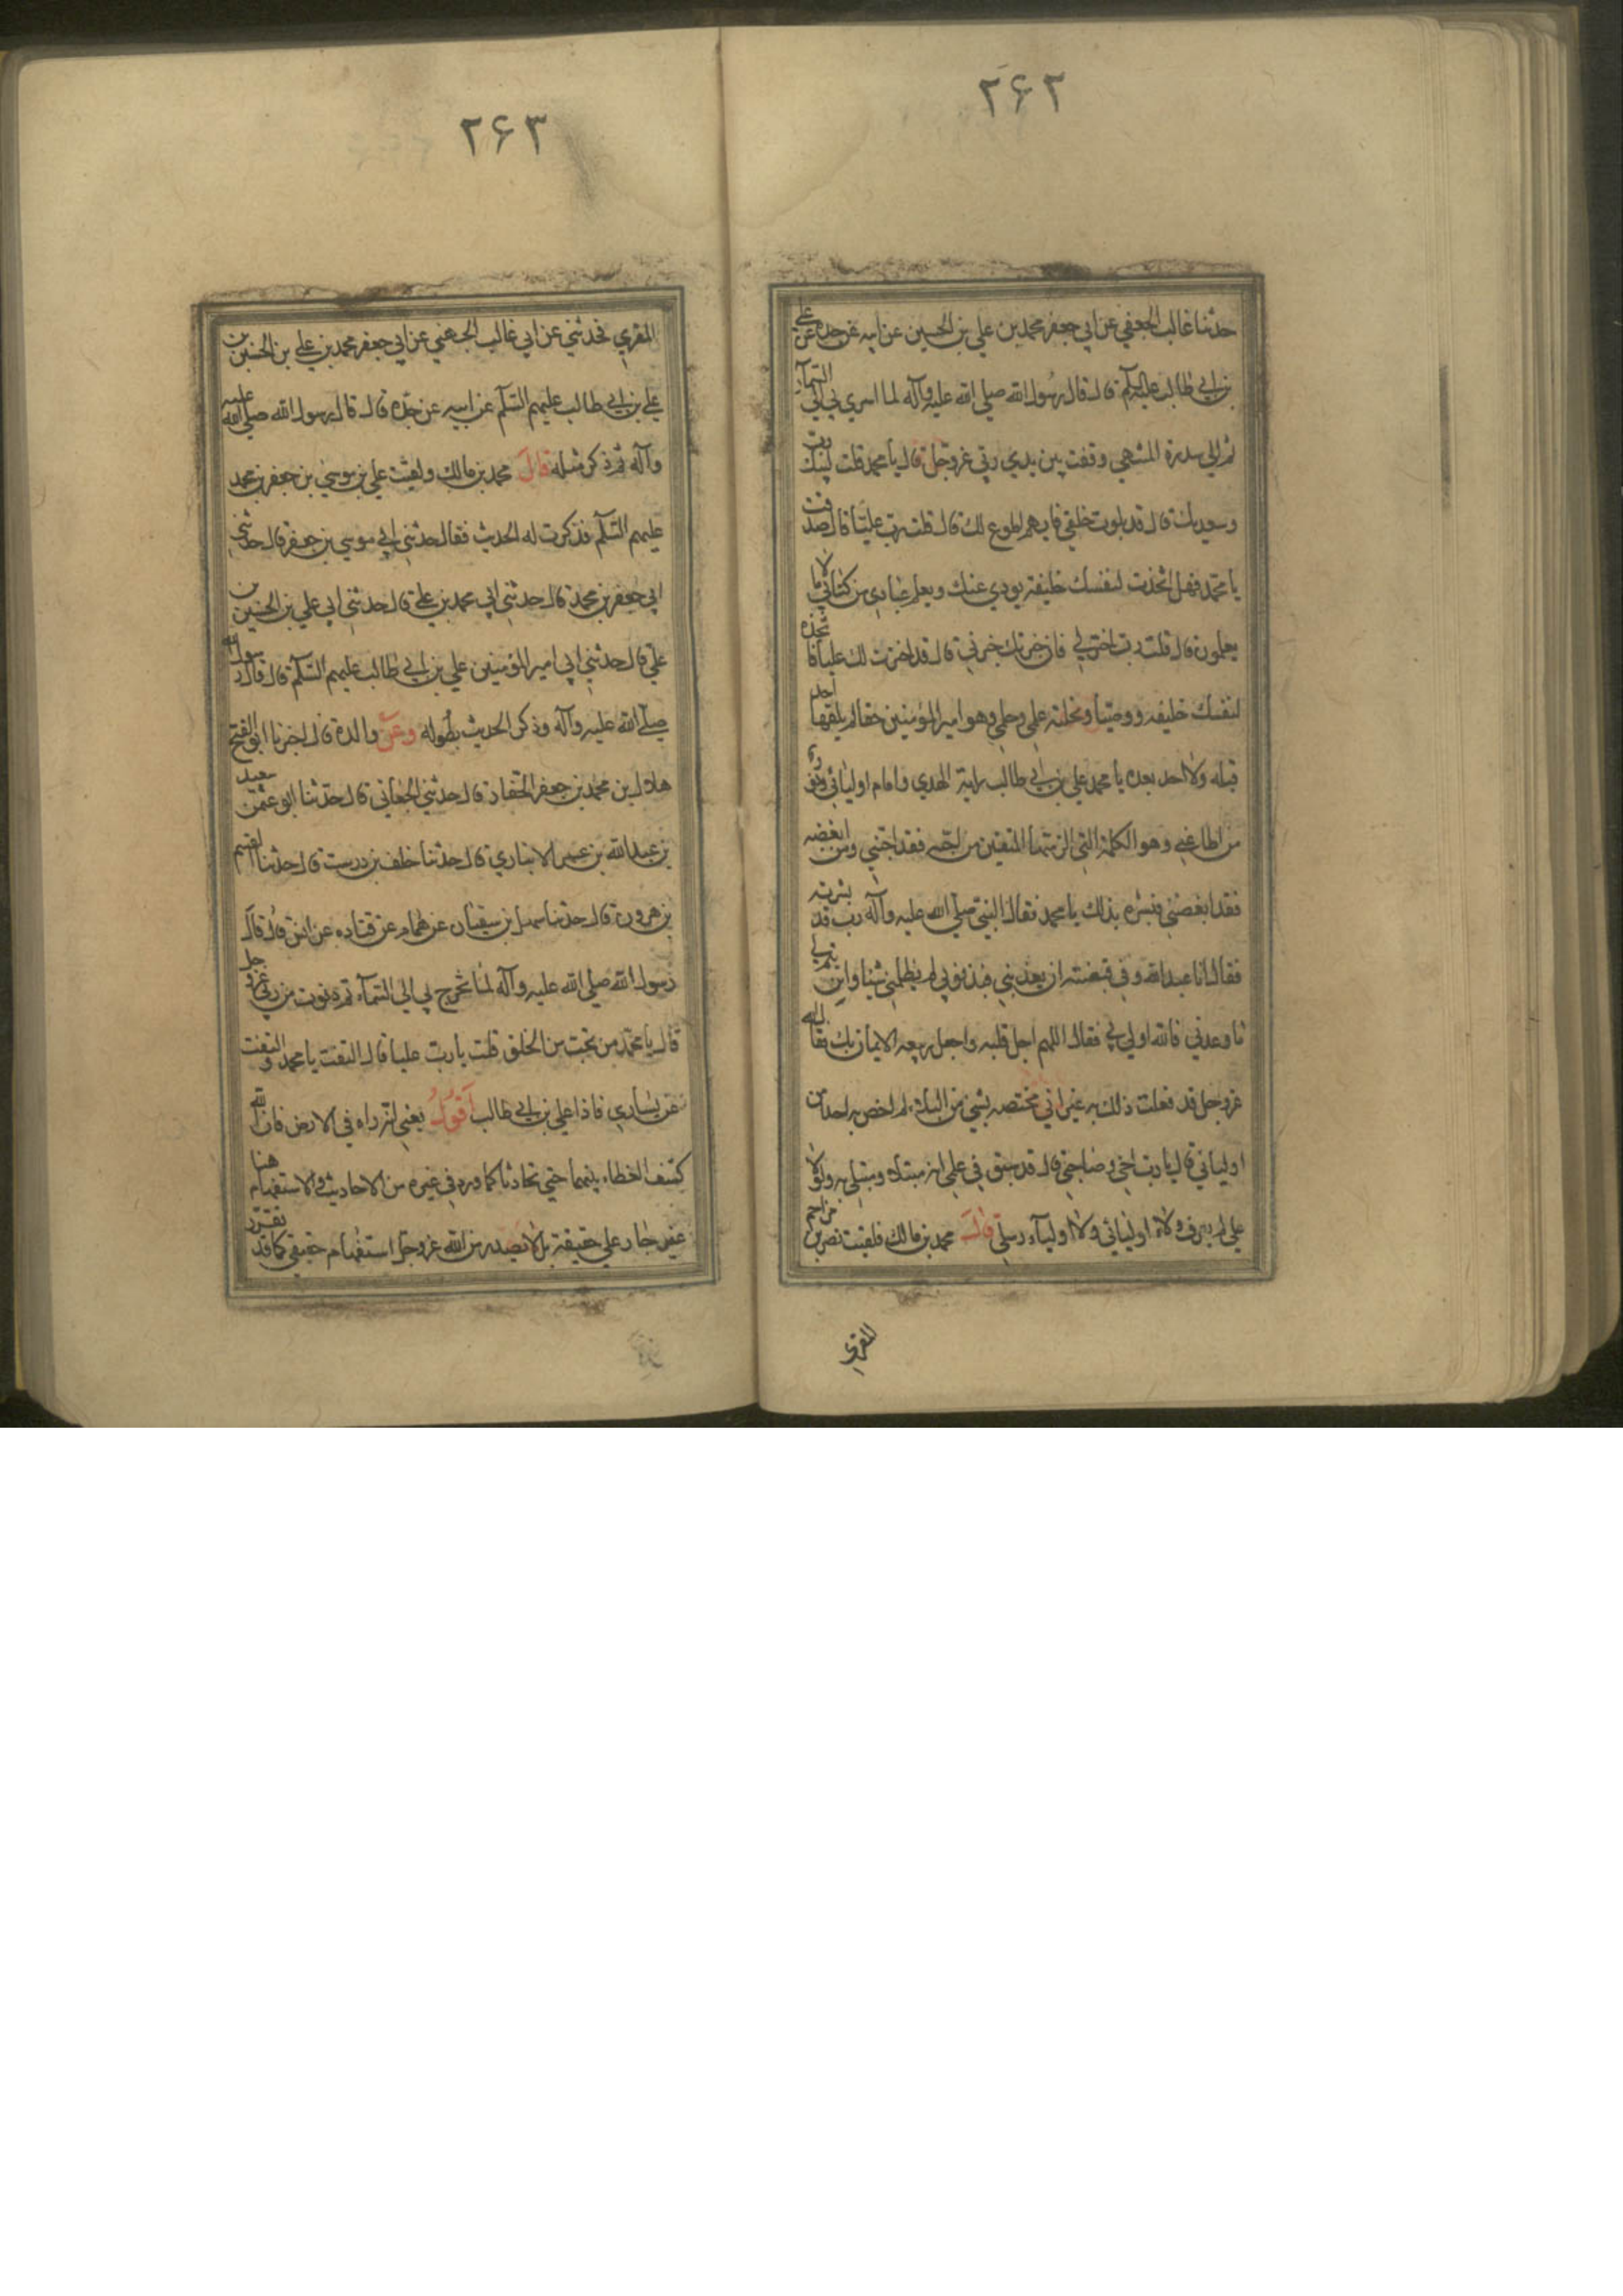 ۲۶۲
حدثنا غالب الجعفي عن ابي جعفر محمد بن علي بن الحسين عن ابيه عن جده عن علي
بن ابي طالب عليه السلم قال قال رسول الله صلي الله عليه وآله لما اسري بي الي السمآء
ثم الي سدرة المنتهي وقفت بين يدي ربي عز وجل قال يا محمد قلت لبيك رب
وسعديك قال قد بلوت خلقي فايهم اطوع لك قال قلت رب عليّا قال صدقت
يا محمد فهل اتخذت لنفسك خليفة يودي عنك ويعلم عبادي من كتابي ما لا
يعلمون قال قلت رب اختر لي فان خيرتك خيرتي قال قد اخترت لك عليا فاتخذه
لنفسك خليفة ووصيّا ونحلته علمي وحلمي وهو امير المؤمنين حقا لم يلقها احد
قبله ولا احد بعده يا محمد علي بن ابي طالب راية الهدي وامام اوليائي ونور
من اطاعني وهو الكلمة التي الزمتها المتقين من احبه فقد احبني ومن ابغضه
فقد ابغضني فبشره بذلك يا محمد فقال النبي صلي الله عليه وآله رب قد بشرته
فقال انا عبد الله وفي قبضته ان يعذبني فبذنوبي لم يظلمني شيئا وان يتم لي
ما وعدني فالله اولي بي فقال اللهم اجل قلبه واجعل ربيعه الايمان بك فقال الله
عز وجل قد فعلت ذلك به غير اني مختصه بشي من البلاء لم اخص به احدا من
اوليائي قال يا رب اخي وصاحبي قال قد سبق في علمي انه مبتلا ومبتلي به ولولا
علي لم يعرف ولاء اوليائي ولا اوليآء رسلي قال محمد بن مالك فلقيت نصر بن مزاحم
المقري
۲۶۳
المقري فحدثني عن ابي غالب الجعفي عن ابي جعفر محمد بن علي بن الحسين بن
علي بن ابي طالب عليهم السلم عن ابيه عن جده قال قال رسول الله صلي الله عليه
وآله ثم ذكر مثله قال محمد بن مالك ولقيت علي بن موسي بن جعفر بن محمد
عليهم السلم فذكرت له الحديث فقال حدثني ابي موسي بن جعفر قال حدثني
ابي جعفر بن محمد قال حدثني ابي محمد بن علي قال حدثني ابي علي بن الحسين بن
علي قال حدثني ابي امير المؤمنين علي بن ابي طالب عليهم السلم قال قال رسول الله
صلي الله عليه وآله وذكر الحديث بطوله وعن والده قال اخبرنا ابو الفتح
هلال بن محمد بن جعفر الحفار قال حدثني الجعابي قال حدثنا ابو عثمن سعيد
بن عبد الله بن عمير الانباري قال حدثنا خلف بن درست قال حدثنا القسم
بن هرون قال حدثنا سهل بن سفيان عن همام عن قتاده عن انس قال قال
رسول الله صلي الله عليه وآله لما عرج بي الي السمآء ثم دنوت من ربي عز وجل
قال يا محمد من تحب من الخلق قلت يا رب عليا قال التفت يا محمد والتفت
عن يساري فاذا علي بن ابي طالب اقول يعني انه راه في الارض فان الله
كشف الغطاء بينهما حتي تحادثا كما ورد في غيره من الاحاديث والاستفهام هنا
غير جار علي حقيقته بل لا يصدر من الله عز وجل استفهام حقيقي كما قد تقرر